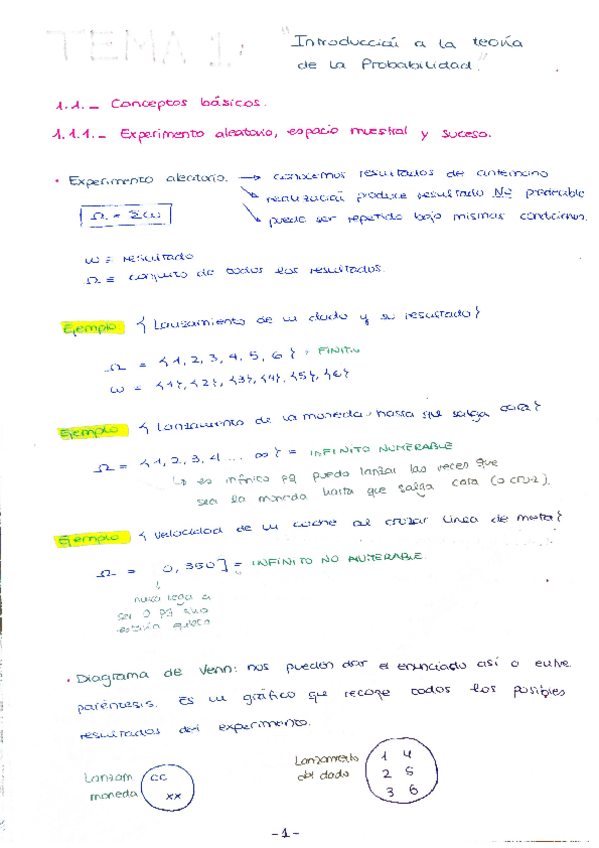 "Introducción a la teoría
de la Probabilidad."
1.1.- Conceptos básicos.
1.1.1.- Experimento aleatorio, espacio muestral y suceso.
• Experimento aleatorio. → conocemos resultados de antemano
↘ realización produce resultado NO predecible
Ω = Σ(ω)
↘ puede ser repetido bajo mismas condiciones.
ω ≡ resultado
Ω ≡ conjunto de todos los resultados.
Ejemplo {Lanzamiento de un dado y su resultado}
Ω = {1, 2, 3, 4, 5, 6} = FINITO
ω = {1}, {2}, {3}, {4}, {5}, {6}
Ejemplo {Lanzamiento de la moneda hasta que salga cara}
Ω = {1, 2, 3, 4 ... ∞} = INFINITO NUMERABLE
↳ es infinito pq puedo lanzar las veces que
sea la moneda hasta que salga cara (o cruz).
Ejemplo {velocidad de un coche al cruzar línea de meta}
Ω = 0, 350] = INFINITO NO NUMERABLE
↓
nunca llega a
ser 0 pq sino
estaría quieto
• Diagrama de Venn: nos pueden dar el enunciado así o entre
paréntesis. Es un gráfico que recoge todos los posibles
resultados del experimento.
Lanzam
moneda
CC
XX
Lanzamiento
del dado
1 4
2 5
3 6
-1-